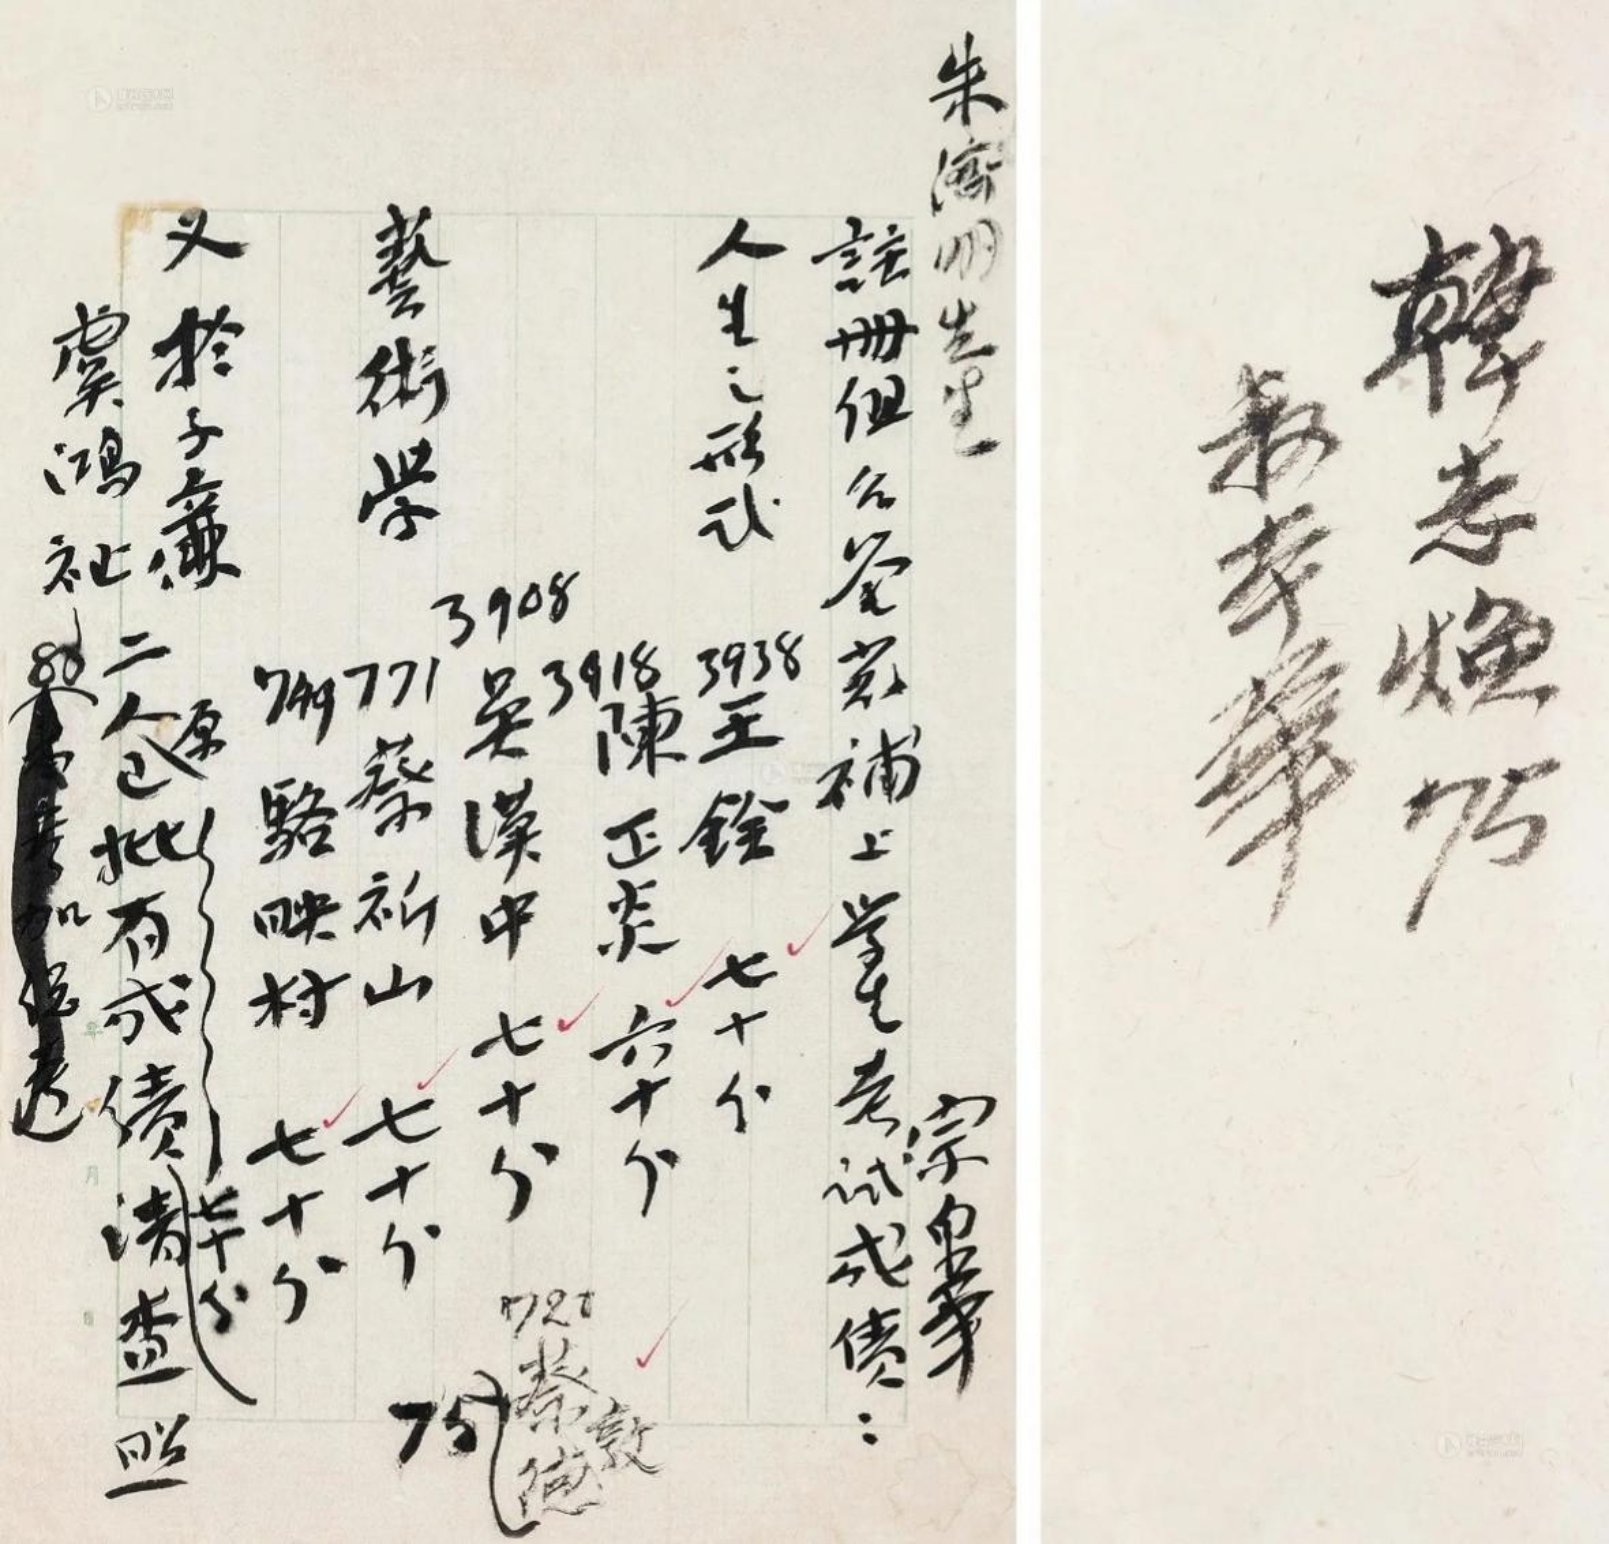 朱濟明先生
註冊組公鑒茲補上學生考試成績：
宗白華
人生之形式
3938 王銓 七十分
3918 陳正炎 六十分
3908 吳漢中 七十分
藝術學
771 蔡祈山 七十分
749 駱映村 七十分
蔡德敦
75
又於子廉 原 七十分
虞鴻祉 二人已批有成績請查照
韓志 75